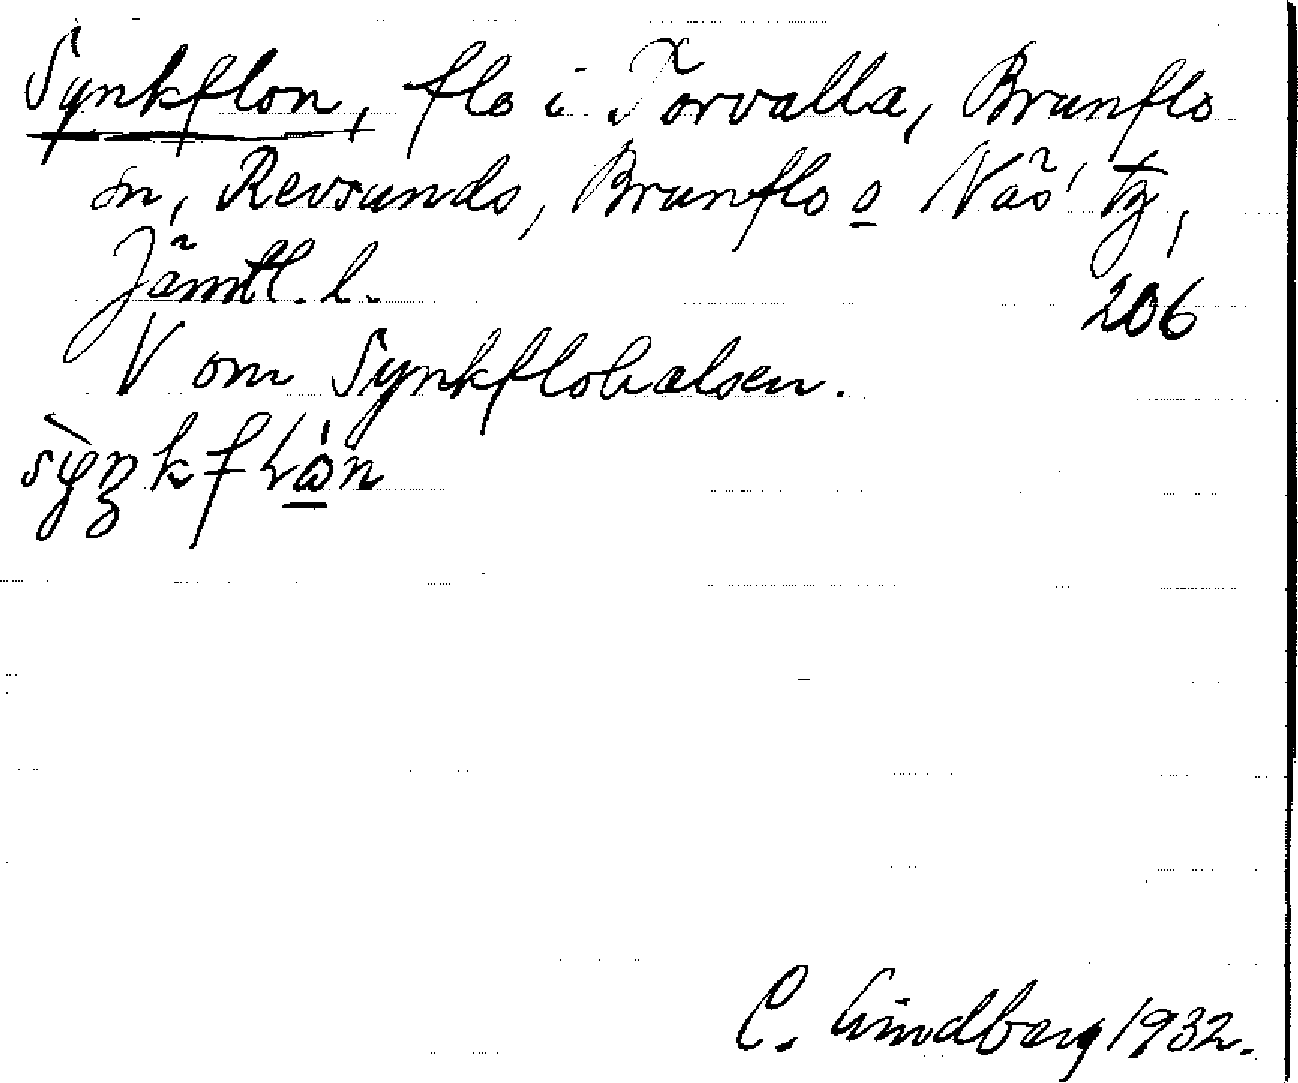 Synkflon, flo i Torvalla, Brunflo
sn, Revsunds, Brunflo o Näs' tg,
Jämtl. l.
206
V om Synkflohalsen.
C. Lindberg 1932.